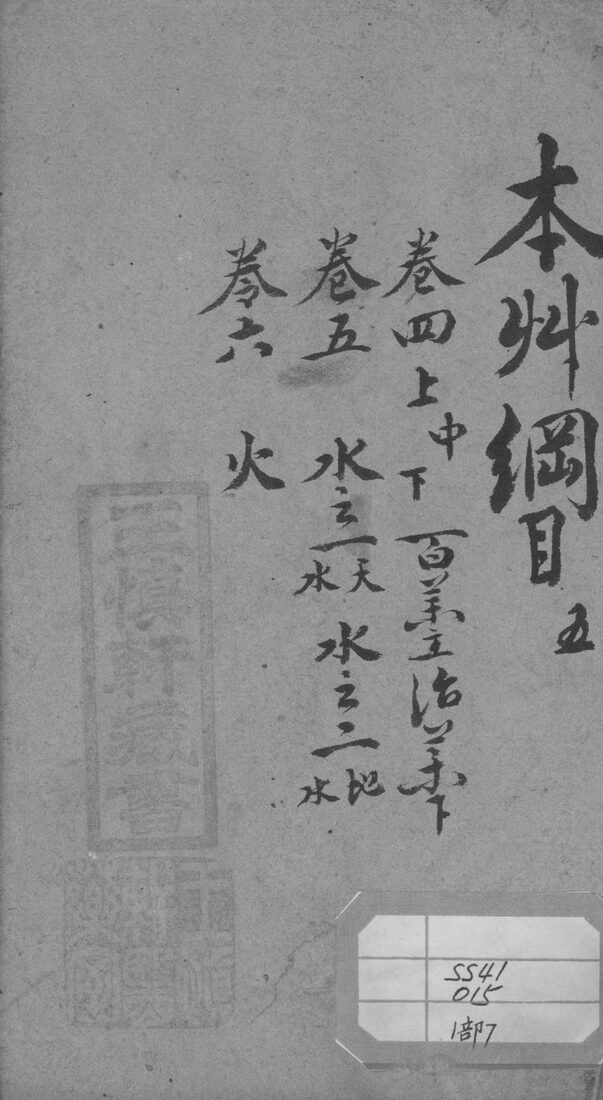 本艸綱目 五
卷四 上中下 百藥主治藥下
卷五 水之一天水 水之二地水
卷六 火
王慎軒藏書
SS41
015
1部7